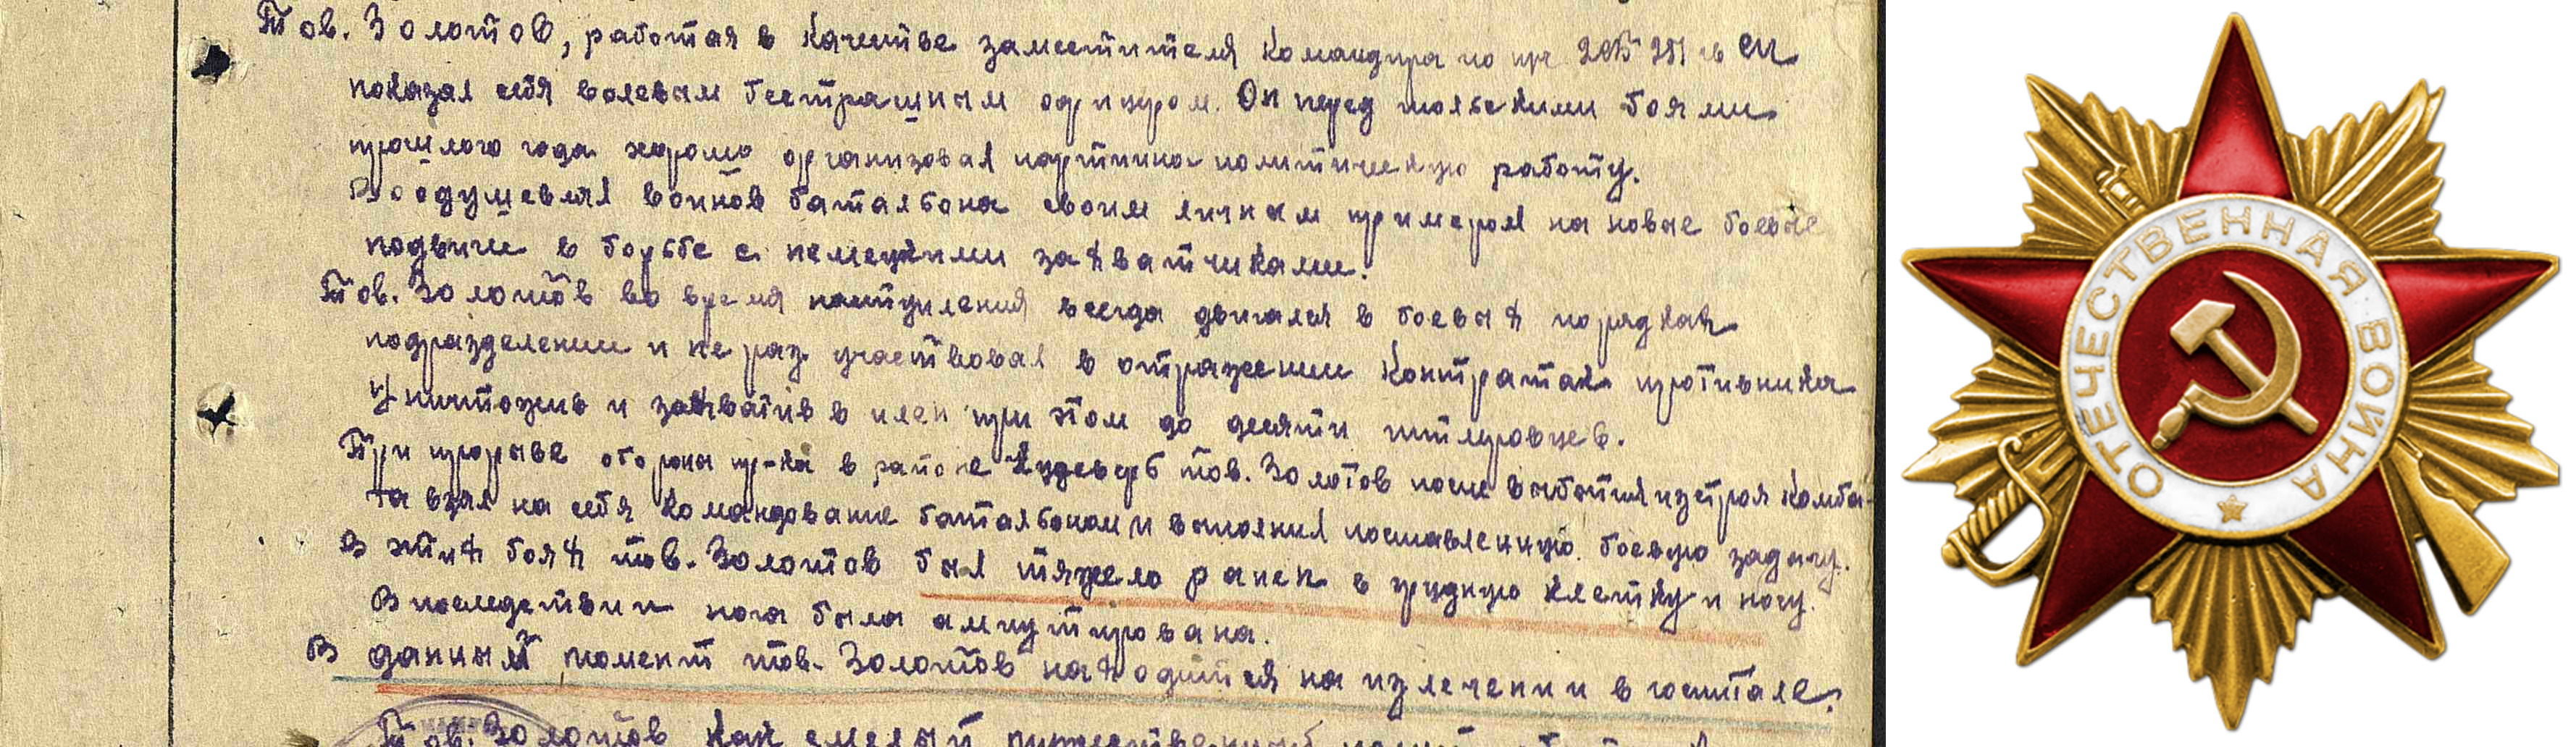 Тов. Золотов, работая в качестве заместителя командира по п/ч 2СБ 281 гв СП
показал себя волевым бесстрашным офицером. Он перед июльскими боями
прошлого года хорошо организовал партийно политическую работу.
Воодушевлял воинов батальона своим личным примером на новые боевые
подвиги в борьбе с немецкими захватчиками.
Тов. Золотов во время наступления всегда двигался в боевых порядках
подразделении и не раз участвовал в отражении контратак противника
Уничтожив и захватив в плен при этом до десяти гитлеровцев.
При прорыве обороны пр-ка в районе тов. Золотов после выбытия из строя комба-
та взял на себя командование батальоном и выполнил поставленную боевую задачу.
В этих боях тов. Золотов был тяжело ранен в грудную клетку и ногу.
Впоследствии нога была ампутирована.
В данный момент тов. Золотов находится на излечении в госпитале.
Тов. Золотов как смелый
ОТЕЧЕСТВЕННАЯ ВОЙНА